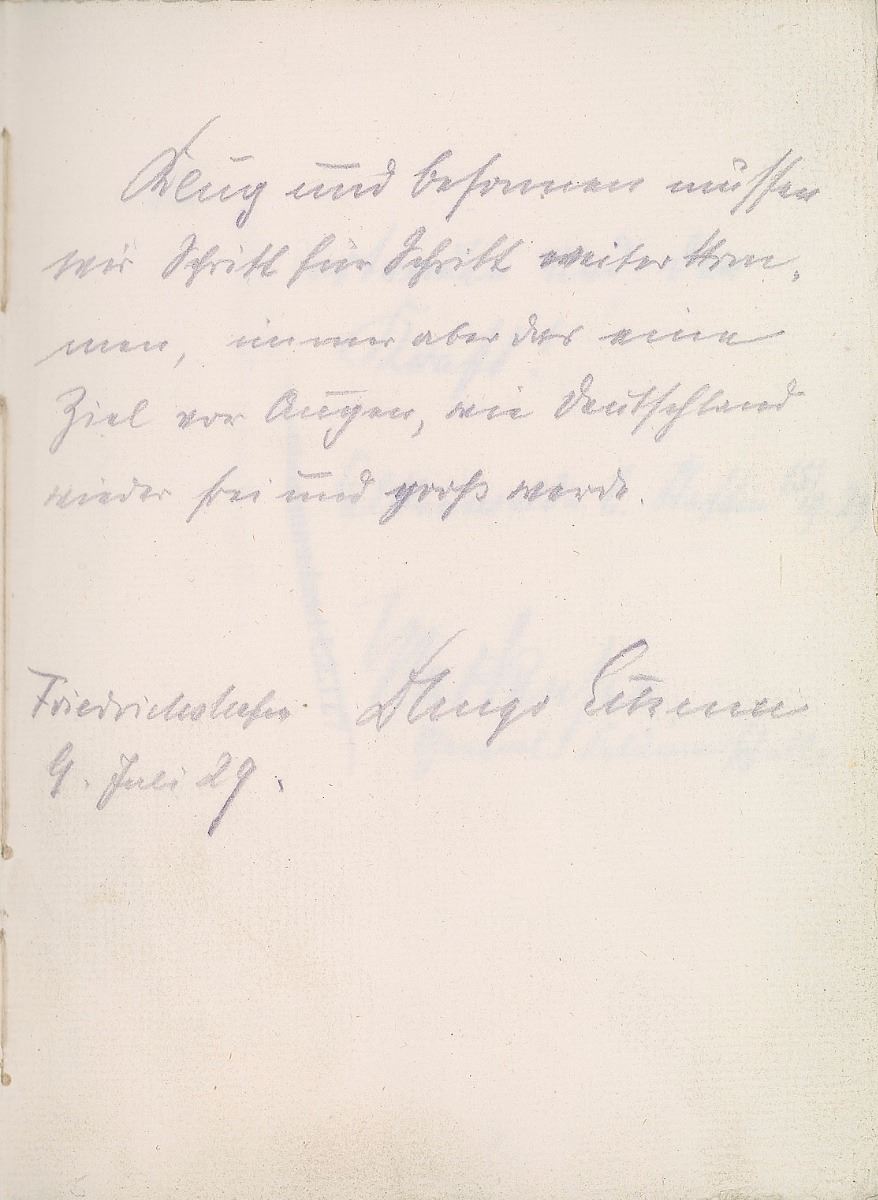 Klug und besonnen müssen
wir Schritt für Schritt weiter kom-
men, immer aber das eine
Ziel vor Augen, wie Deutschland
wieder frei und groß werde.
Friedrichshafen Hugo Eckener
9. Juli 29.